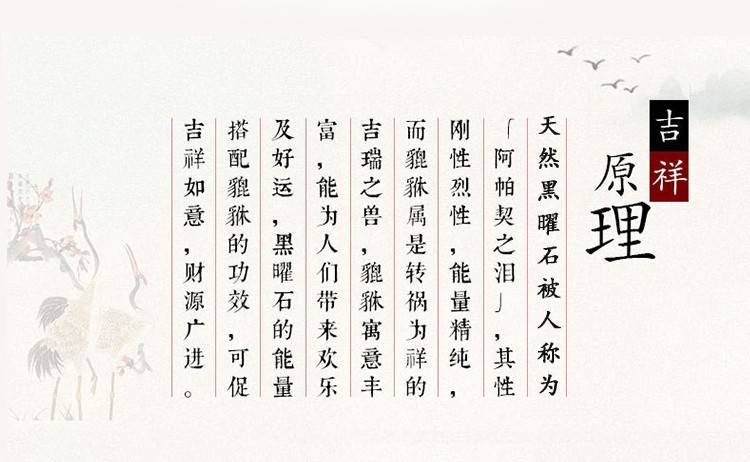 吉祥
原理
天然黑曜石被人称为
「阿帕契之泪」,其性
刚性烈性,能量精纯,
而貔貅属是转祸为祥的
吉瑞之兽,貔貅寓意丰
富,能为人们带来欢乐
及好运,黑曜石的能量
搭配貔貅的功效,可促
吉祥如意,财源广进。